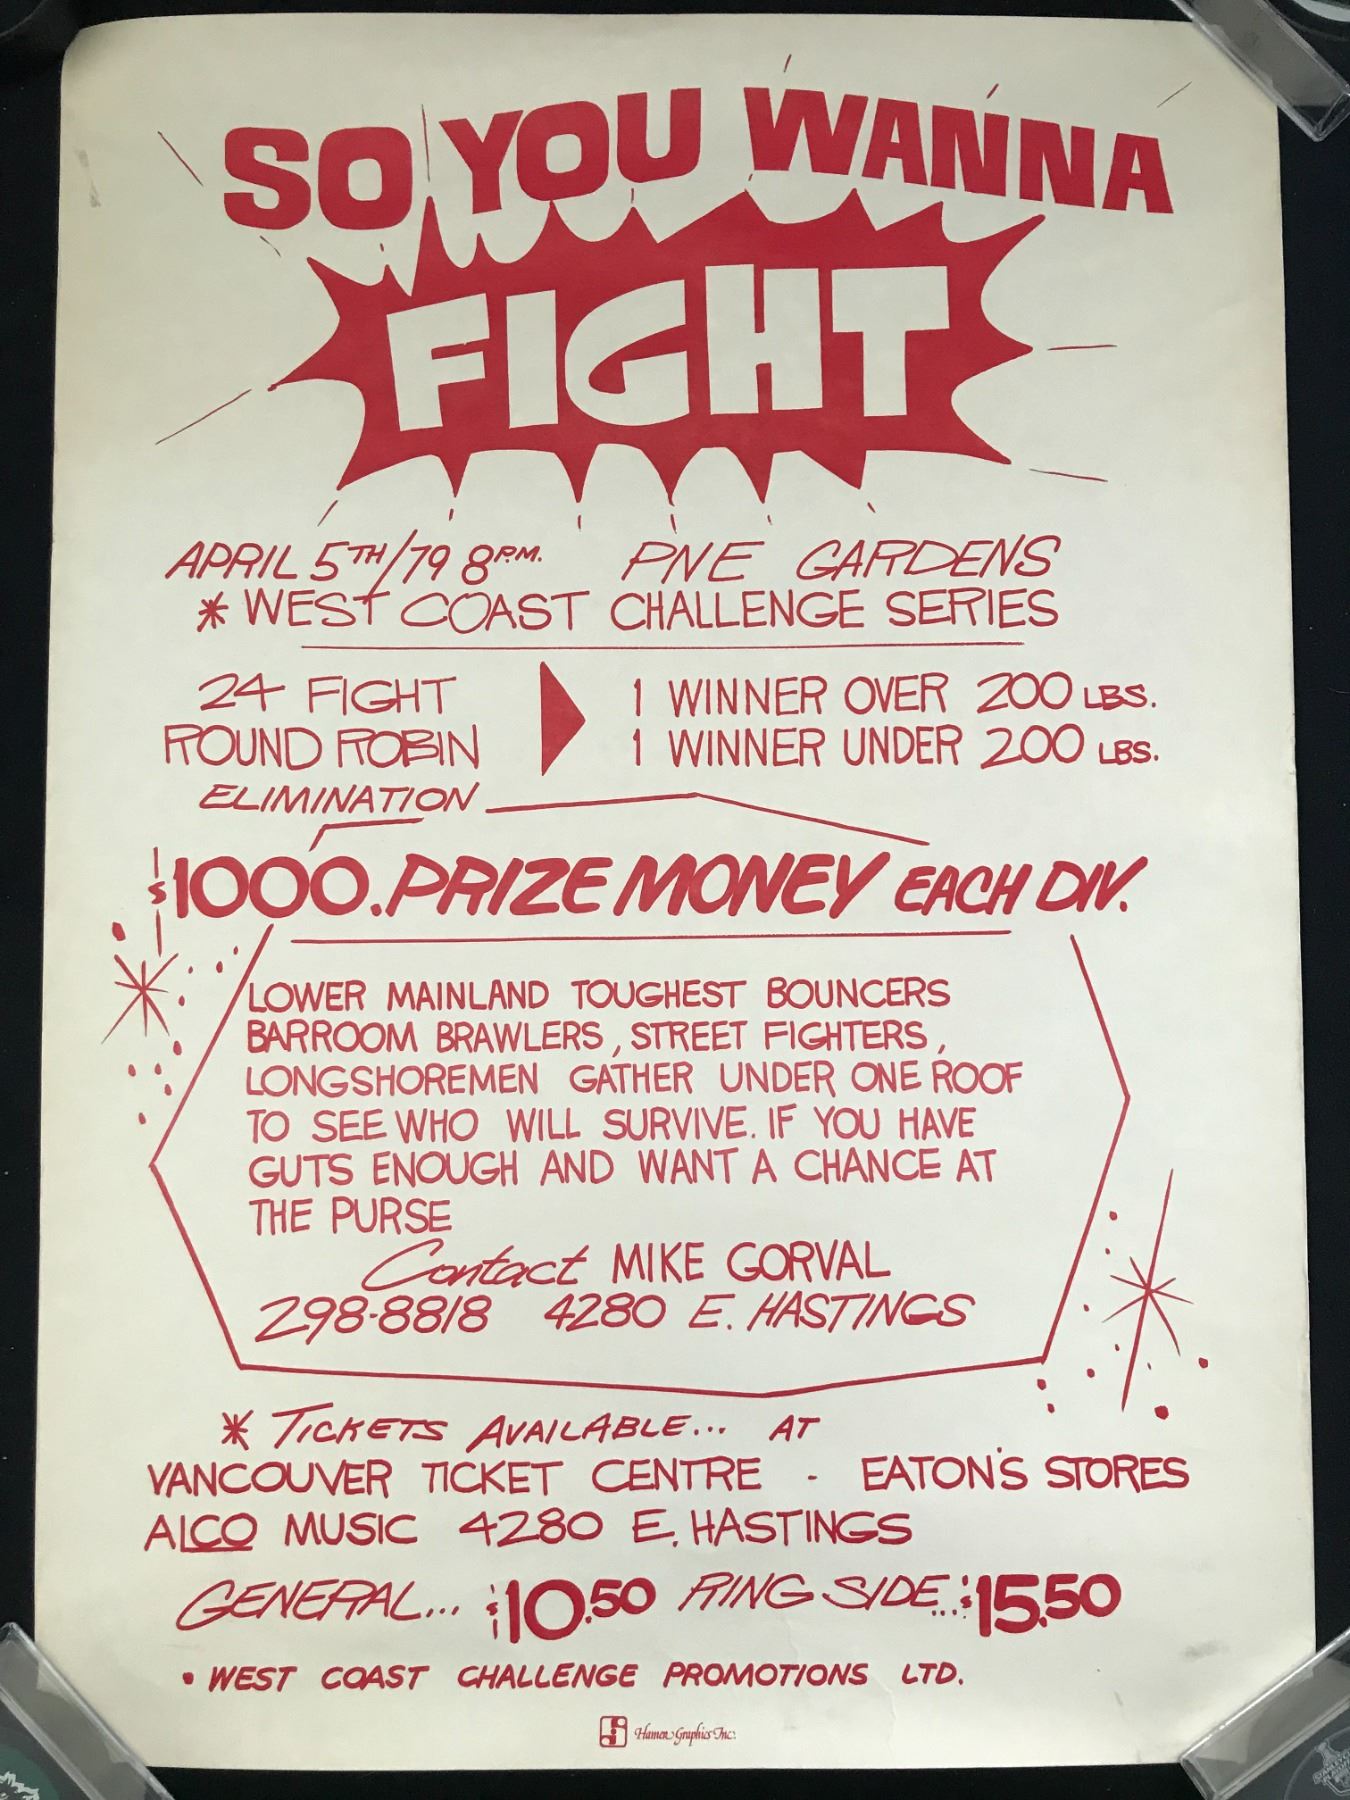 SO YOU WANNA
FIGHT
APRIL 5TH/79 8P.M. PNE GARDENS
* WEST COAST CHALLENGE SERIES
24 FIGHT
ROUND ROBIN
ELIMINATION
1 WINNER OVER 200 LBS.
1 WINNER UNDER 200 LBS.
$1000. PRIZE MONEY EACH DIV.
LOWER MAINLAND TOUGHEST BOUNCERS
BARROOM BRAWLERS, STREET FIGHTERS,
LONGSHOREMEN GATHER UNDER ONE ROOF
TO SEE WHO WILL SURVIVE. IF YOU HAVE
GUTS ENOUGH AND WANT A CHANCE AT
THE PURSE
Contact MIKE GORVAL
298-8818 4280 E. HASTINGS
* TICKETS AVAILABLE... AT
VANCOUVER TICKET CENTRE - EATON'S STORES
ALCO MUSIC 4280 E. HASTINGS
GENERAL... $10.50 RING SIDE... $15.50
• WEST COAST CHALLENGE PROMOTIONS LTD.
Hamen Graphics Inc.